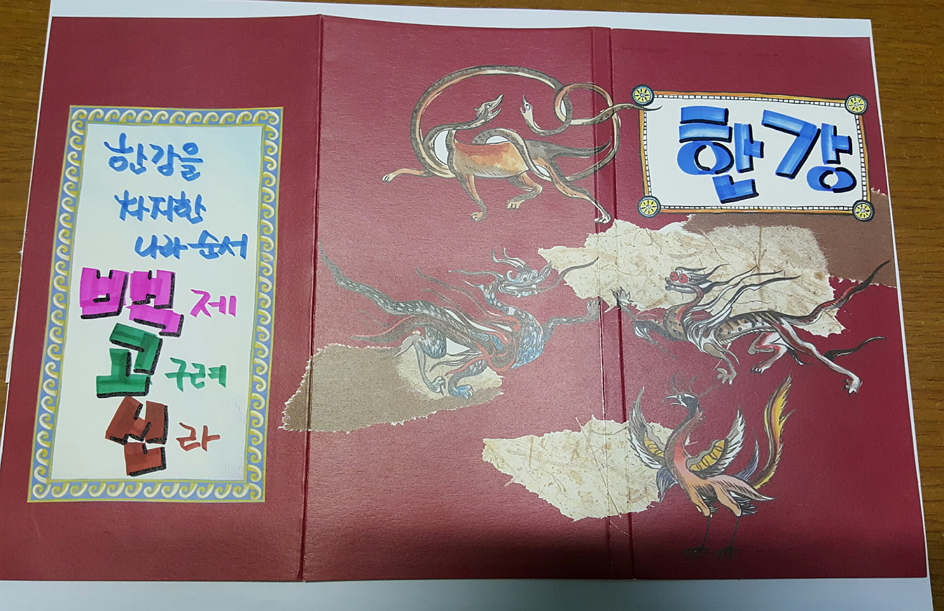 한강을
차지한
나라 순서
백제
고구려
신라
한강